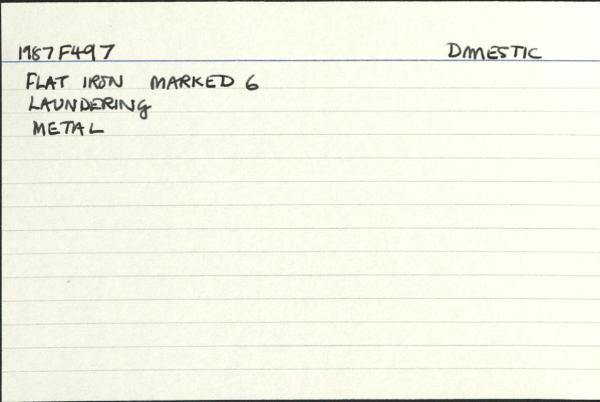 1987F497 DMESTIC
FLAT IRON MARKED 6
LAUNDERING
METAL